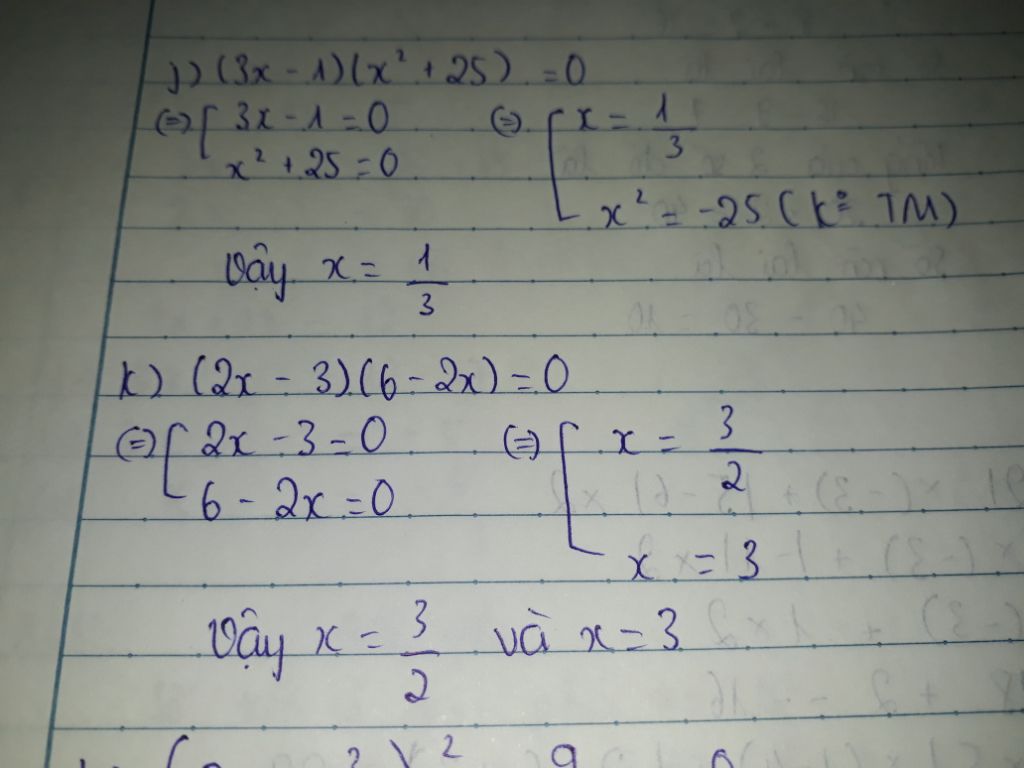 j) (3x - 1)(x² + 25) = 0
(=) [ 3x - 1 = 0 (=) [ x = 1/3
x² + 25 = 0 x² = -25 (k° TM)
Vậy x = 1/3
k) (2x - 3)(6 - 2x) = 0
(=) [ 2x - 3 = 0 (=) [ x = 3/2
6 - 2x = 0 x = 3
Vậy x = 3/2 và x = 3